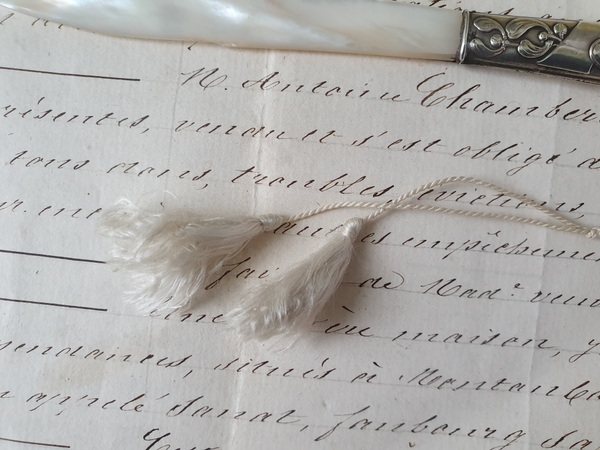 M. Antoine Chamber
résentes, vendu et s'est obligé à
tous dons, troubles, évictions,
autres empêchemen
fai de Mad.e veuv
Une ère maison, y
endances, situés à Montauba
appelé Sanat, faubourg Sa